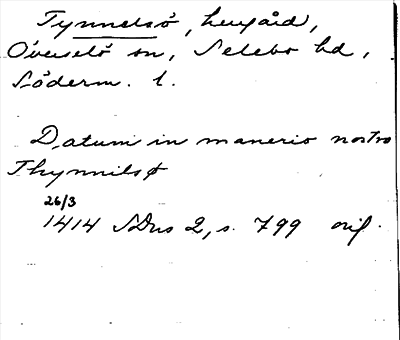 Tynnelsö, herrgård,
Överselö sn, Selebo hd,
Söderm. l.
Datum in manerio nostro
Thynnilsø
26/3
1414 SDns 2, s. 799 orig.